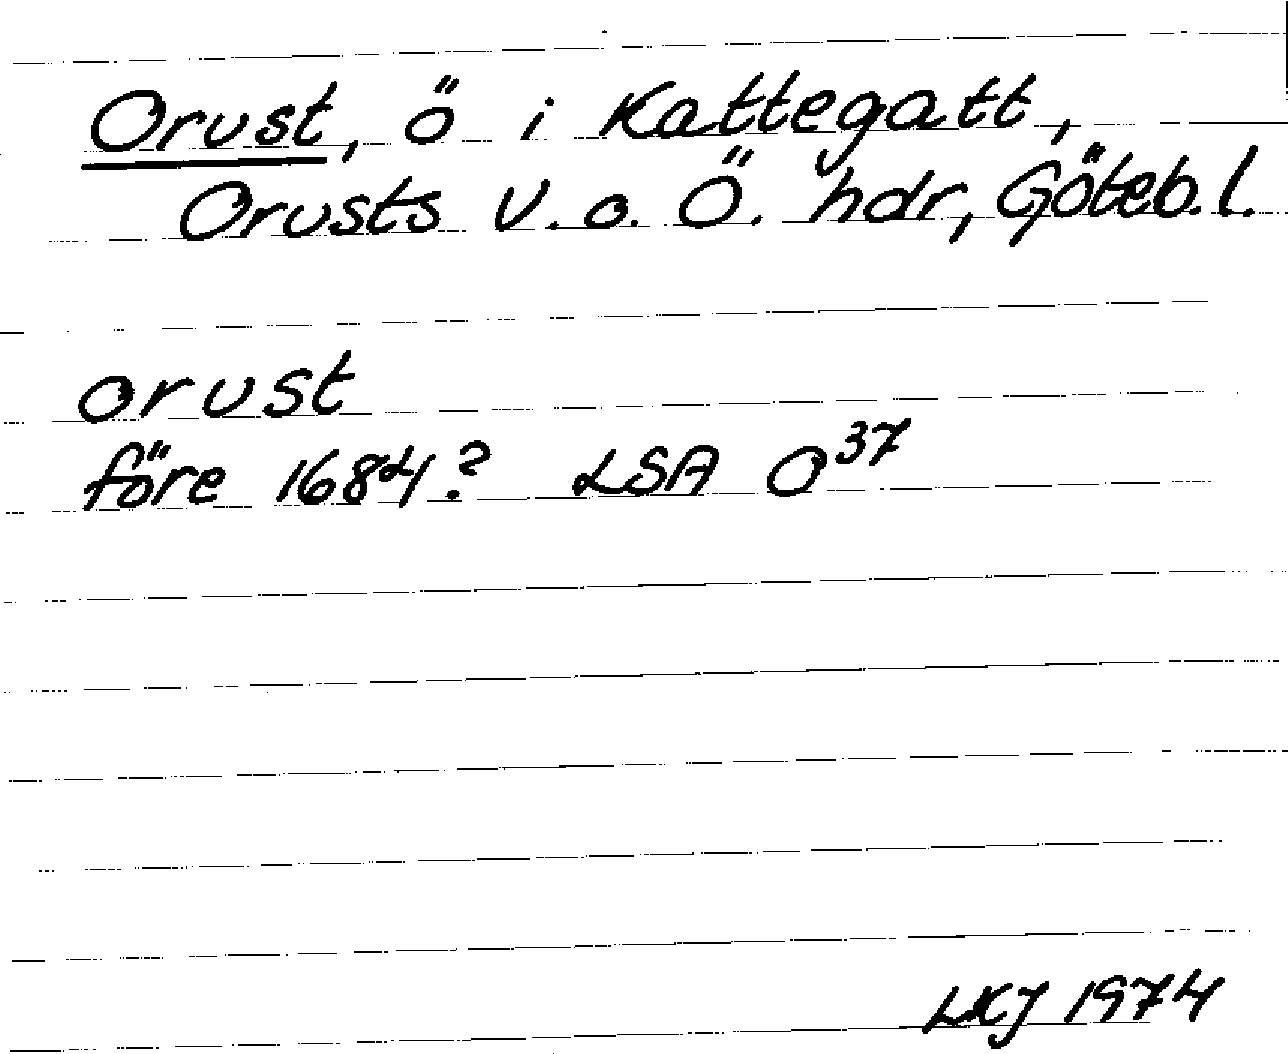 Orust, ö i Kattegatt,
Orusts V. o. Ö. hdr, Göteb. l.
orust
före 1684? LSA O37
LKJ 1974